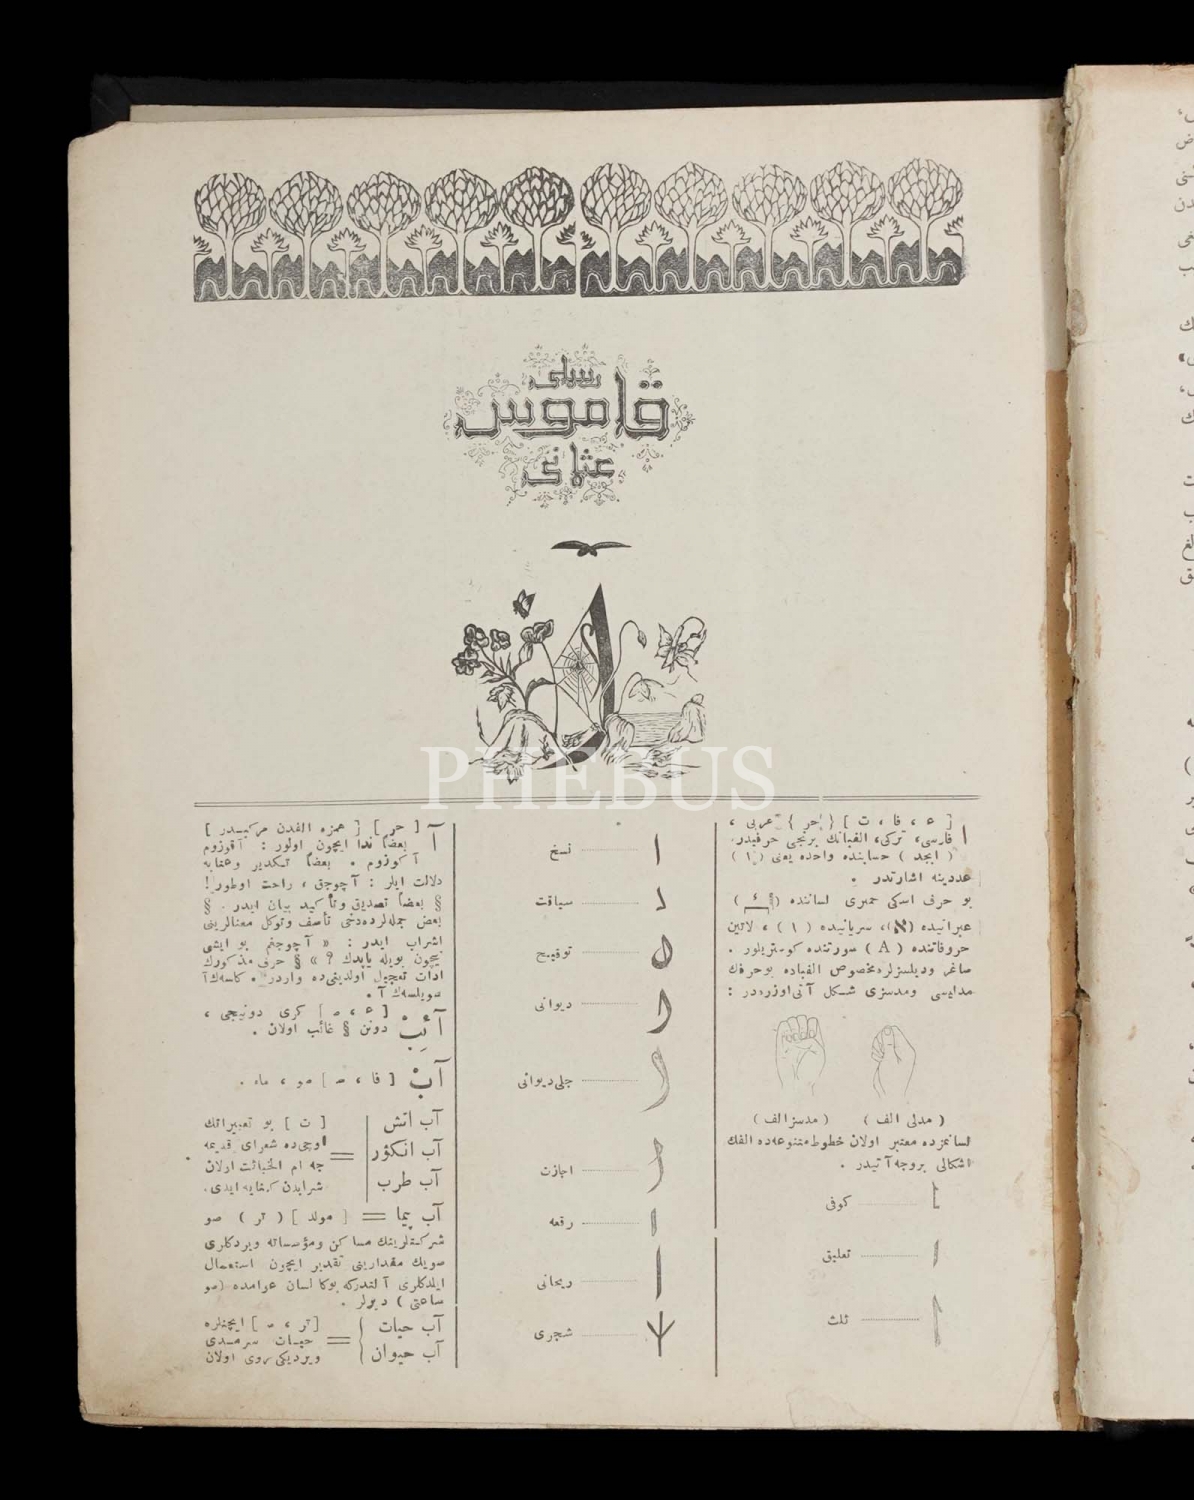 رسملی
قاموس
عثمانی
PHEBUS
ا [ ع ، فا ، ت ] { حر } عربی ،
فارسی، ترکی، الفبانك برنجی حرفیدر.
( ابجد ) حسابنده واحده یعنی ( ١ )
عددینه اشارتدر .
بو حرف اسكی حمیری لساننده
عبرانیده (א)، سریانیده ( ١ ) ، لاتین
حروفاتنده ( A ) صورتنده كوستریلور .
صاغر ودیلسزلره مخصوص الفباده بوحرفك
مدلیسی ومدسزی شكل آتی اوزره در :
( مدلی الف ) ( مدسز الف )
لسانمزده معتبر اولان خطوط متنوعه ده الفك
اشكالی بروجه آتیدر .
كوفی
تعلیق
ثلث
ا نسخ
سیاقت
توقیع
دیوانی
جلی دیوانی
اجازت
رقعه
ریحانی
شجری
آ [ حر ] [ همزه الفدن مركبدر ]
بعضاً ندا ایچون اولور : آقوزوم
آ كوزوم . بعضاً تكدیر وعتابه
دلالت ایلر : آ چوجق ، راحت اوطور !
§ بعضاً تصدیق وتأكید بیان ایدر . §
بعض جمله لرده دخی تأسف وتوكل معنالرینی
اشراب ایدر : « آ چوجغم بو ایشی
نیچون بویله یاپدك ? » § حرف مذكورك
ادات تعجیل اولدیغی ده واردر .
سویلسه ك آ .
آئب [ ع ، ص ] كری دونیجی ،
دونن § غائب اولان .
آبْ [ فا ، ] صو ، ماء .
آب آتش
آب انكور
آب طرب
[ ت ] بو تعبیراتك
اوچی ده شعرای قدیمه
چه ام الخبائث اولان
شرابدن كنایه ایدی.
آب پیما = [ مولد ] ( تر ) صو
شركتلرینك مساكن ومؤسساته ویردكلری
صویك مقدارینی تقدیر ایچون استعمال
ایلدكلری آلتدركه بوكا لسان عوامده (صو
ساعتی ) دیرلر .
آب حیات
آب حیوان
ایچنلره
حیات سرمدی
ویردیكی مروی اولان